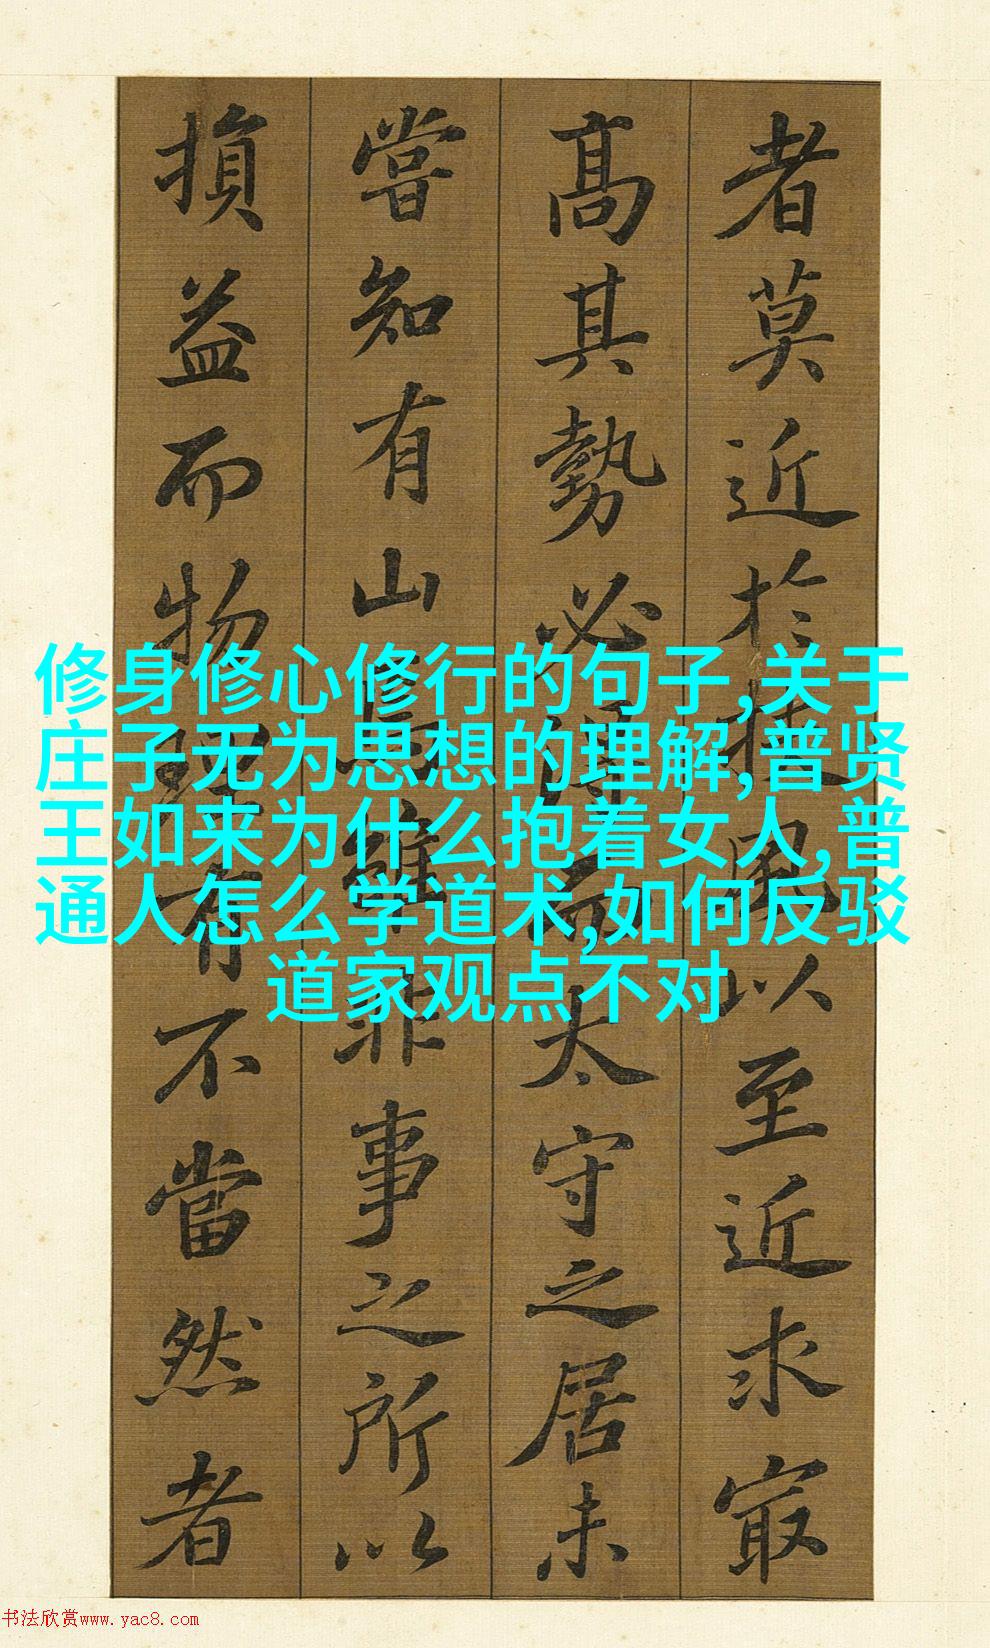 者莫近於扶風以至近求冣
高其勢必得而太守之居未
嘗知有山焉雖非事之所以
損益而物理有不當然者
修身修心修行的句子,关于
庄子无为思想的理解,普贤
王如来为什么抱着女人,普
通人怎么学道术,如何反驳
道家观点不对
书法欣赏www.yac8.com